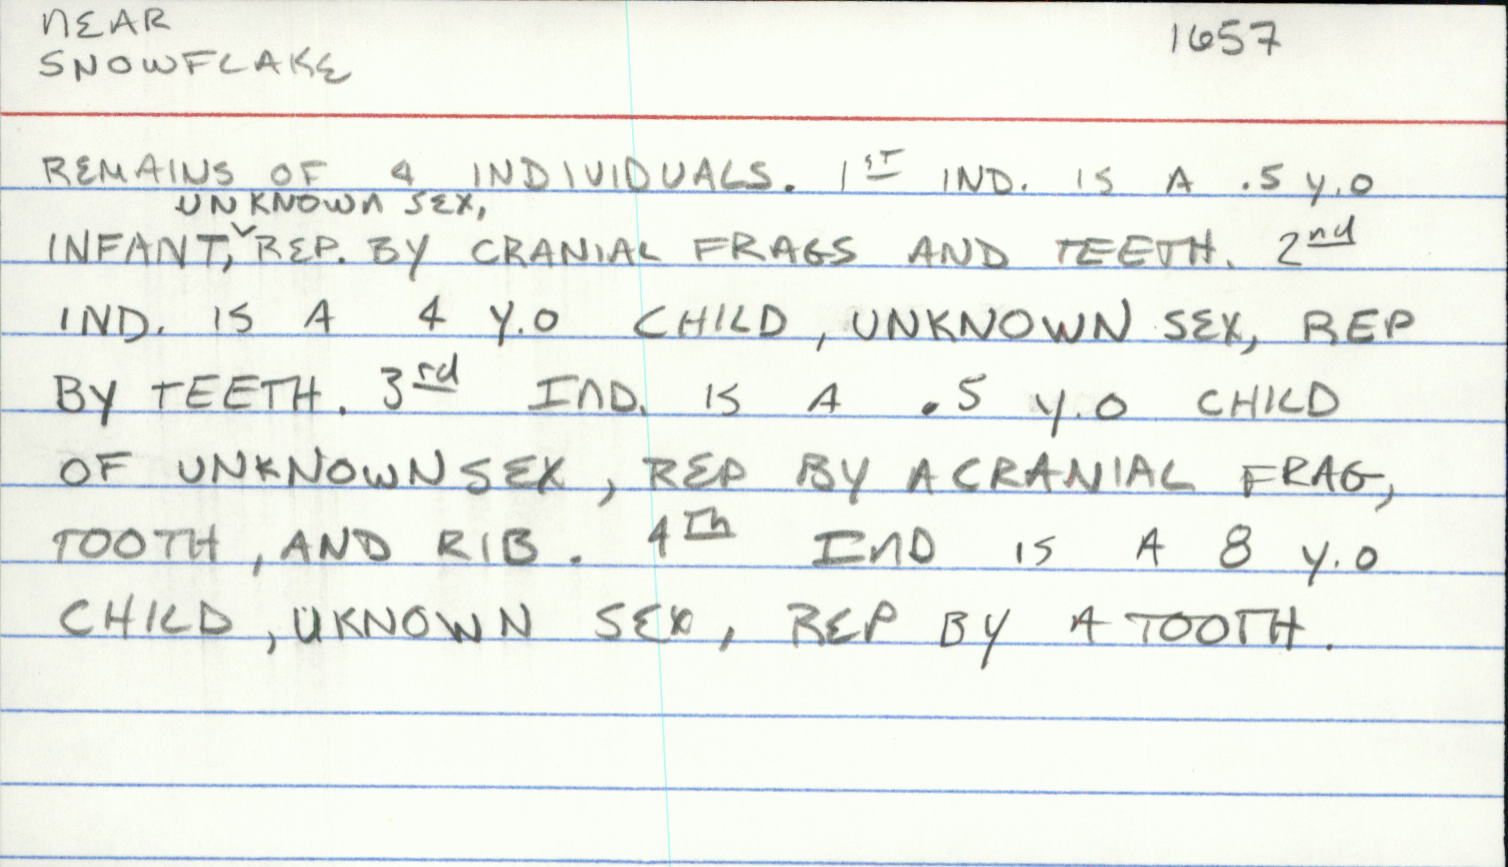 NEAR
SNOWFLAKE
1657
REMAINS OF 4 INDIVIDUALS. 1ST IND. IS A .5 Y.O
UNKNOWN SEX,
INFANT, REP. BY CRANIAL FRAGS AND TEETH. 2nd
IND. IS A 4 Y.O CHILD, UNKNOWN SEX, REP
BY TEETH. 3rd IND. IS A .5 Y.O CHILD
OF UNKNOWN SEX, REP BY A CRANIAL FRAG,
TOOTH, AND RIB. 4Th IND IS A 8 Y.O
CHILD, UKNOWN SEX, REP BY A TOOTH.